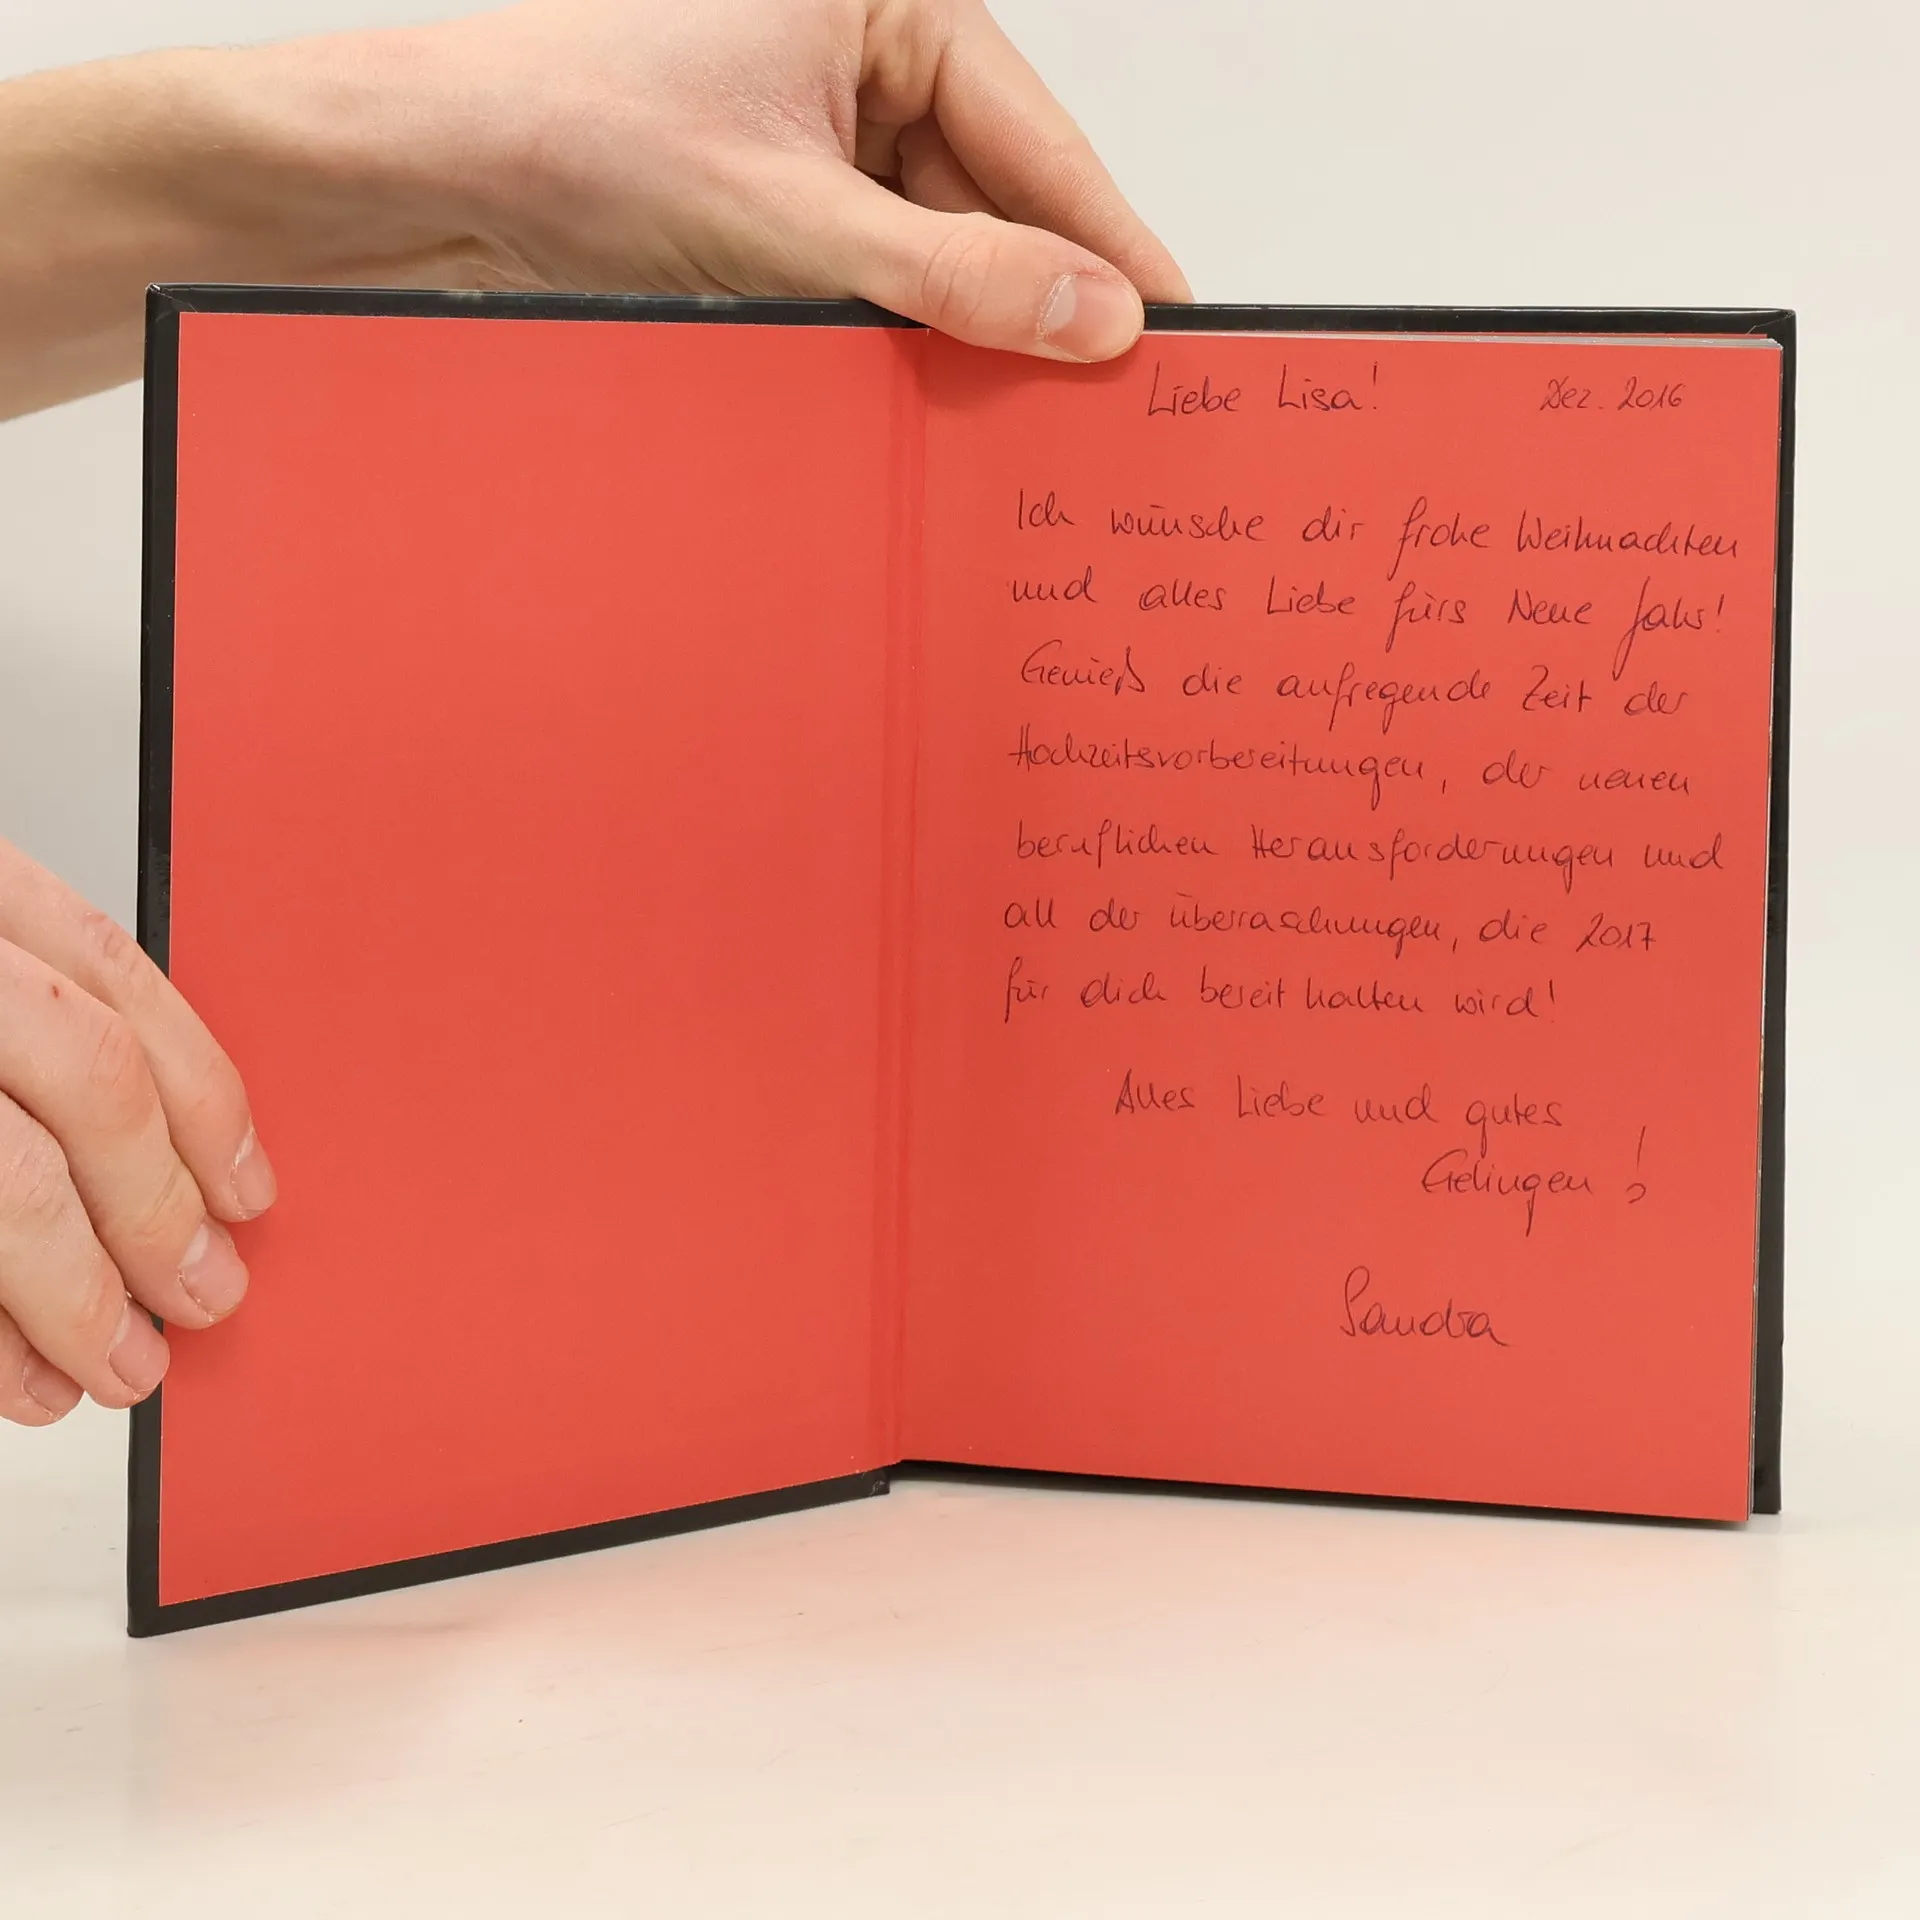 Liebe Lisa! Dez. 2016
Ich wünsche dir frohe Weihnachten
und alles Liebe fürs Neue Jahr!
Genieß die aufregende Zeit der
Hochzeitsvorbereitungen, der neuen
beruflichen Herausforderungen und
all der Überraschungen, die 2017
für dich bereit halten wird!
Alles Liebe und gutes
Gelingen!
Sandra